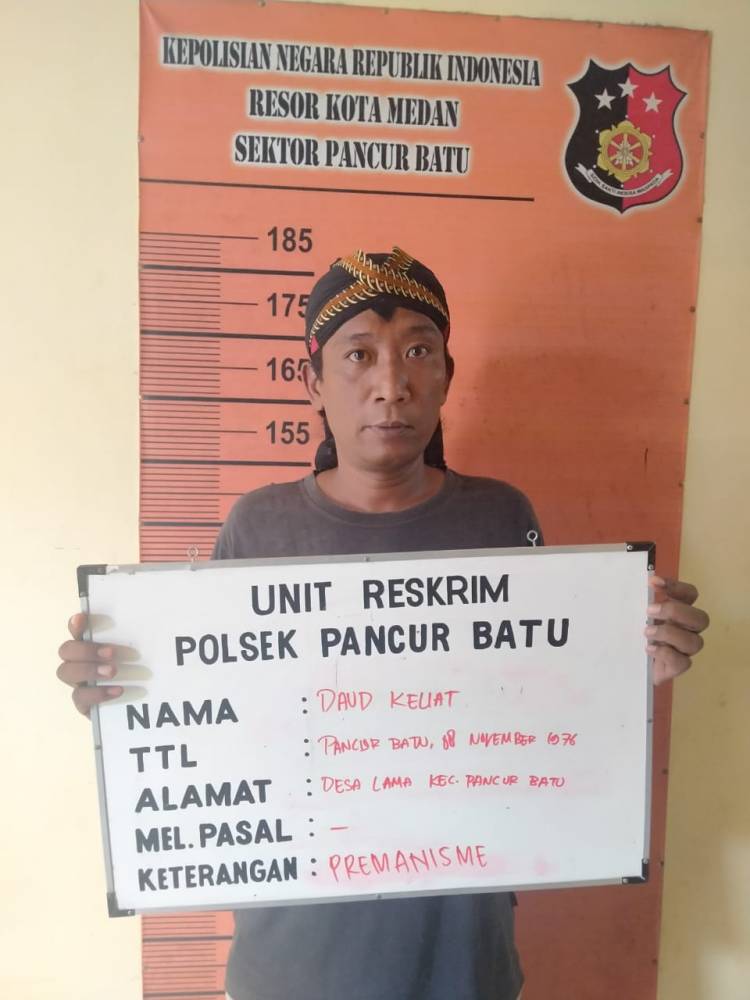 KEPOLISIAN NEGARA REPUBLIK INDONESIA
RESOR KOTA MEDAN
SEKTOR PANCUR BATU
185
175
165
155
UNIT RESKRIM
POLSEK PANCUR BATU
NAMA : DAUD KELIAT
TTL : PANCUR BATU, 08 NOVEMBER 1976
ALAMAT : DESA LAMA KEC. PANCUR BATU
MEL. PASAL : –
KETERANGAN : PREMANISME